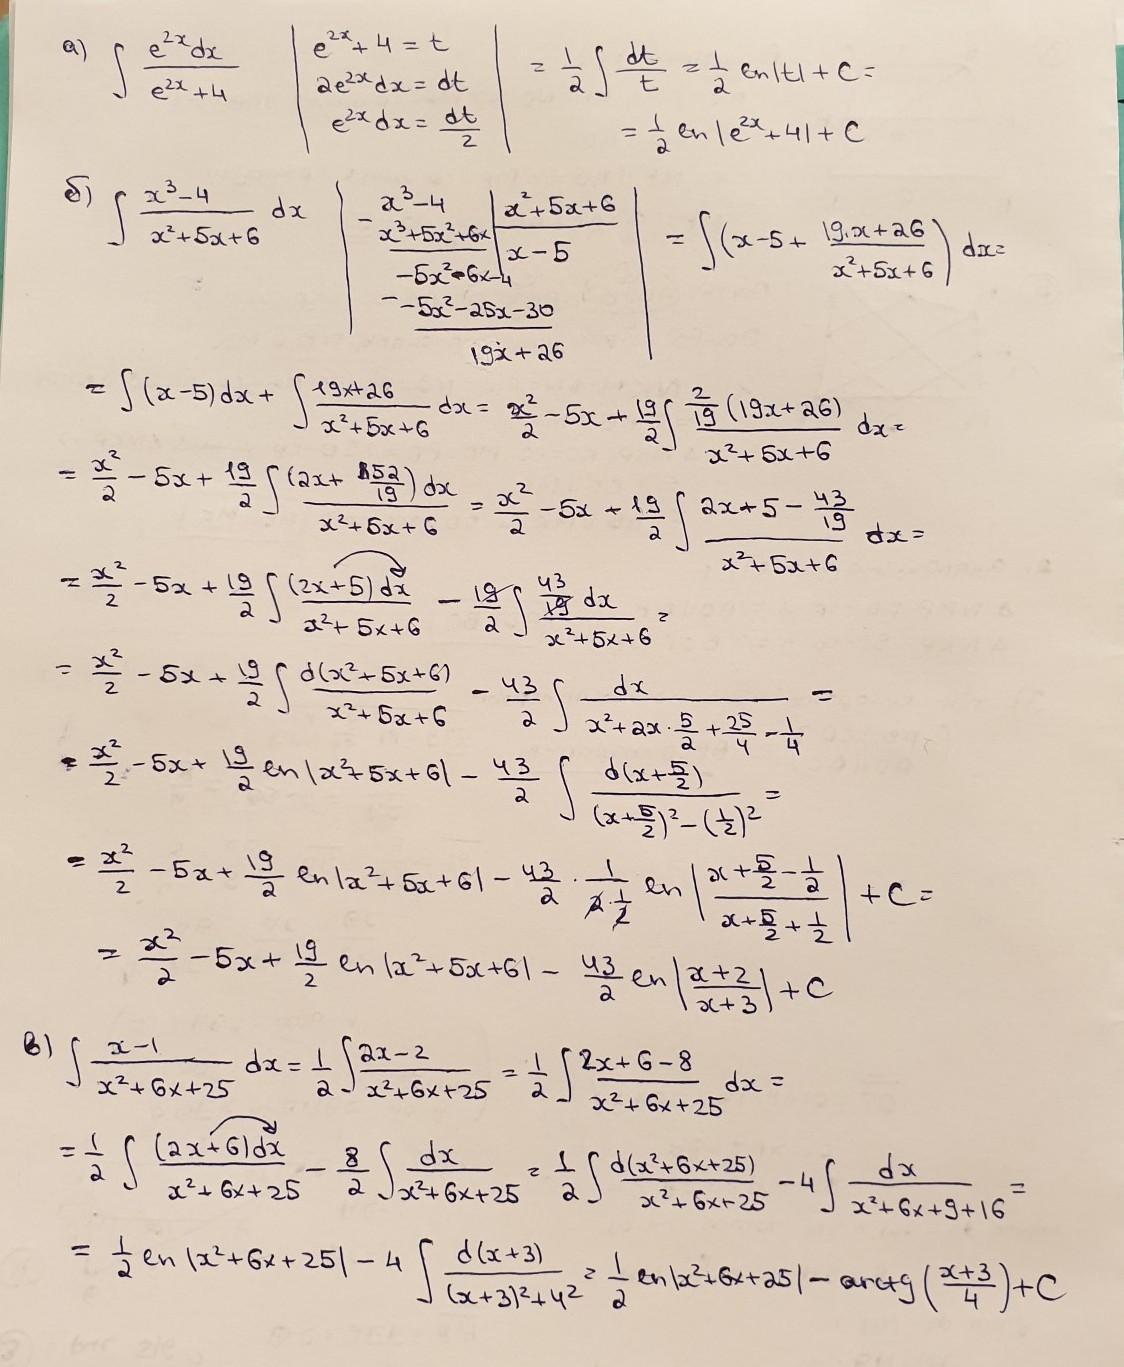 а) ∫ e^{2x}dx / (e^{2x}+4) | e^{2x}+4 = t | = 1/2 ∫ dt/t = 1/2 ln|t| + C =
2e^{2x}dx = dt
e^{2x}dx = dt/2 | = 1/2 ln|e^{2x}+4| + C
б) ∫ (x³-4)/(x²+5x+6) dx | x³-4 | x²+5x+6 | = ∫(x-5 + (19x+26)/(x²+5x+6)) dx =
- x³+5x²+6x | x-5
-5x²-6x-4
- -5x²-25x-30
19x+26
= ∫(x-5)dx + ∫ (19x+26)/(x²+5x+6) dx = x²/2 - 5x + 19/2 ∫ (2/19 (19x+26))/(x²+5x+6) dx =
= x²/2 - 5x + 19/2 ∫ (2x + 52/19)dx/(x²+5x+6) = x²/2 - 5x + 19/2 ∫ (2x+5 - 43/19)/(x²+5x+6) dx =
= x²/2 - 5x + 19/2 ∫ (2x+5)dx/(x²+5x+6) - 19/2 ∫ (43/19 dx)/(x²+5x+6) =
= x²/2 - 5x + 19/2 ∫ d(x²+5x+6)/(x²+5x+6) - 43/2 ∫ dx/(x²+2x·5/2+25/4-1/4) =
= x²/2 - 5x + 19/2 ln|x²+5x+6| - 43/2 ∫ d(x+5/2)/((x+5/2)²-(1/2)²) =
= x²/2 - 5x + 19/2 ln|x²+5x+6| - 43/2 · 1/(2·1/2) ln|(x+5/2-1/2)/(x+5/2+1/2)| + C =
= x²/2 - 5x + 19/2 ln|x²+5x+6| - 43/2 ln|(x+2)/(x+3)| + C
в) ∫ (x-1)/(x²+6x+25) dx = 1/2 ∫ (2x-2)/(x²+6x+25) = 1/2 ∫ (2x+6-8)/(x²+6x+25) dx =
= 1/2 ∫ (2x+6)dx/(x²+6x+25) - 8/2 ∫ dx/(x²+6x+25) = 1/2 ∫ d(x²+6x+25)/(x²+6x+25) - 4 ∫ dx/(x²+6x+9+16) =
= 1/2 ln|x²+6x+25| - 4 ∫ d(x+3)/((x+3)²+4²) = 1/2 ln|x²+6x+25| - arctg((x+3)/4) + C